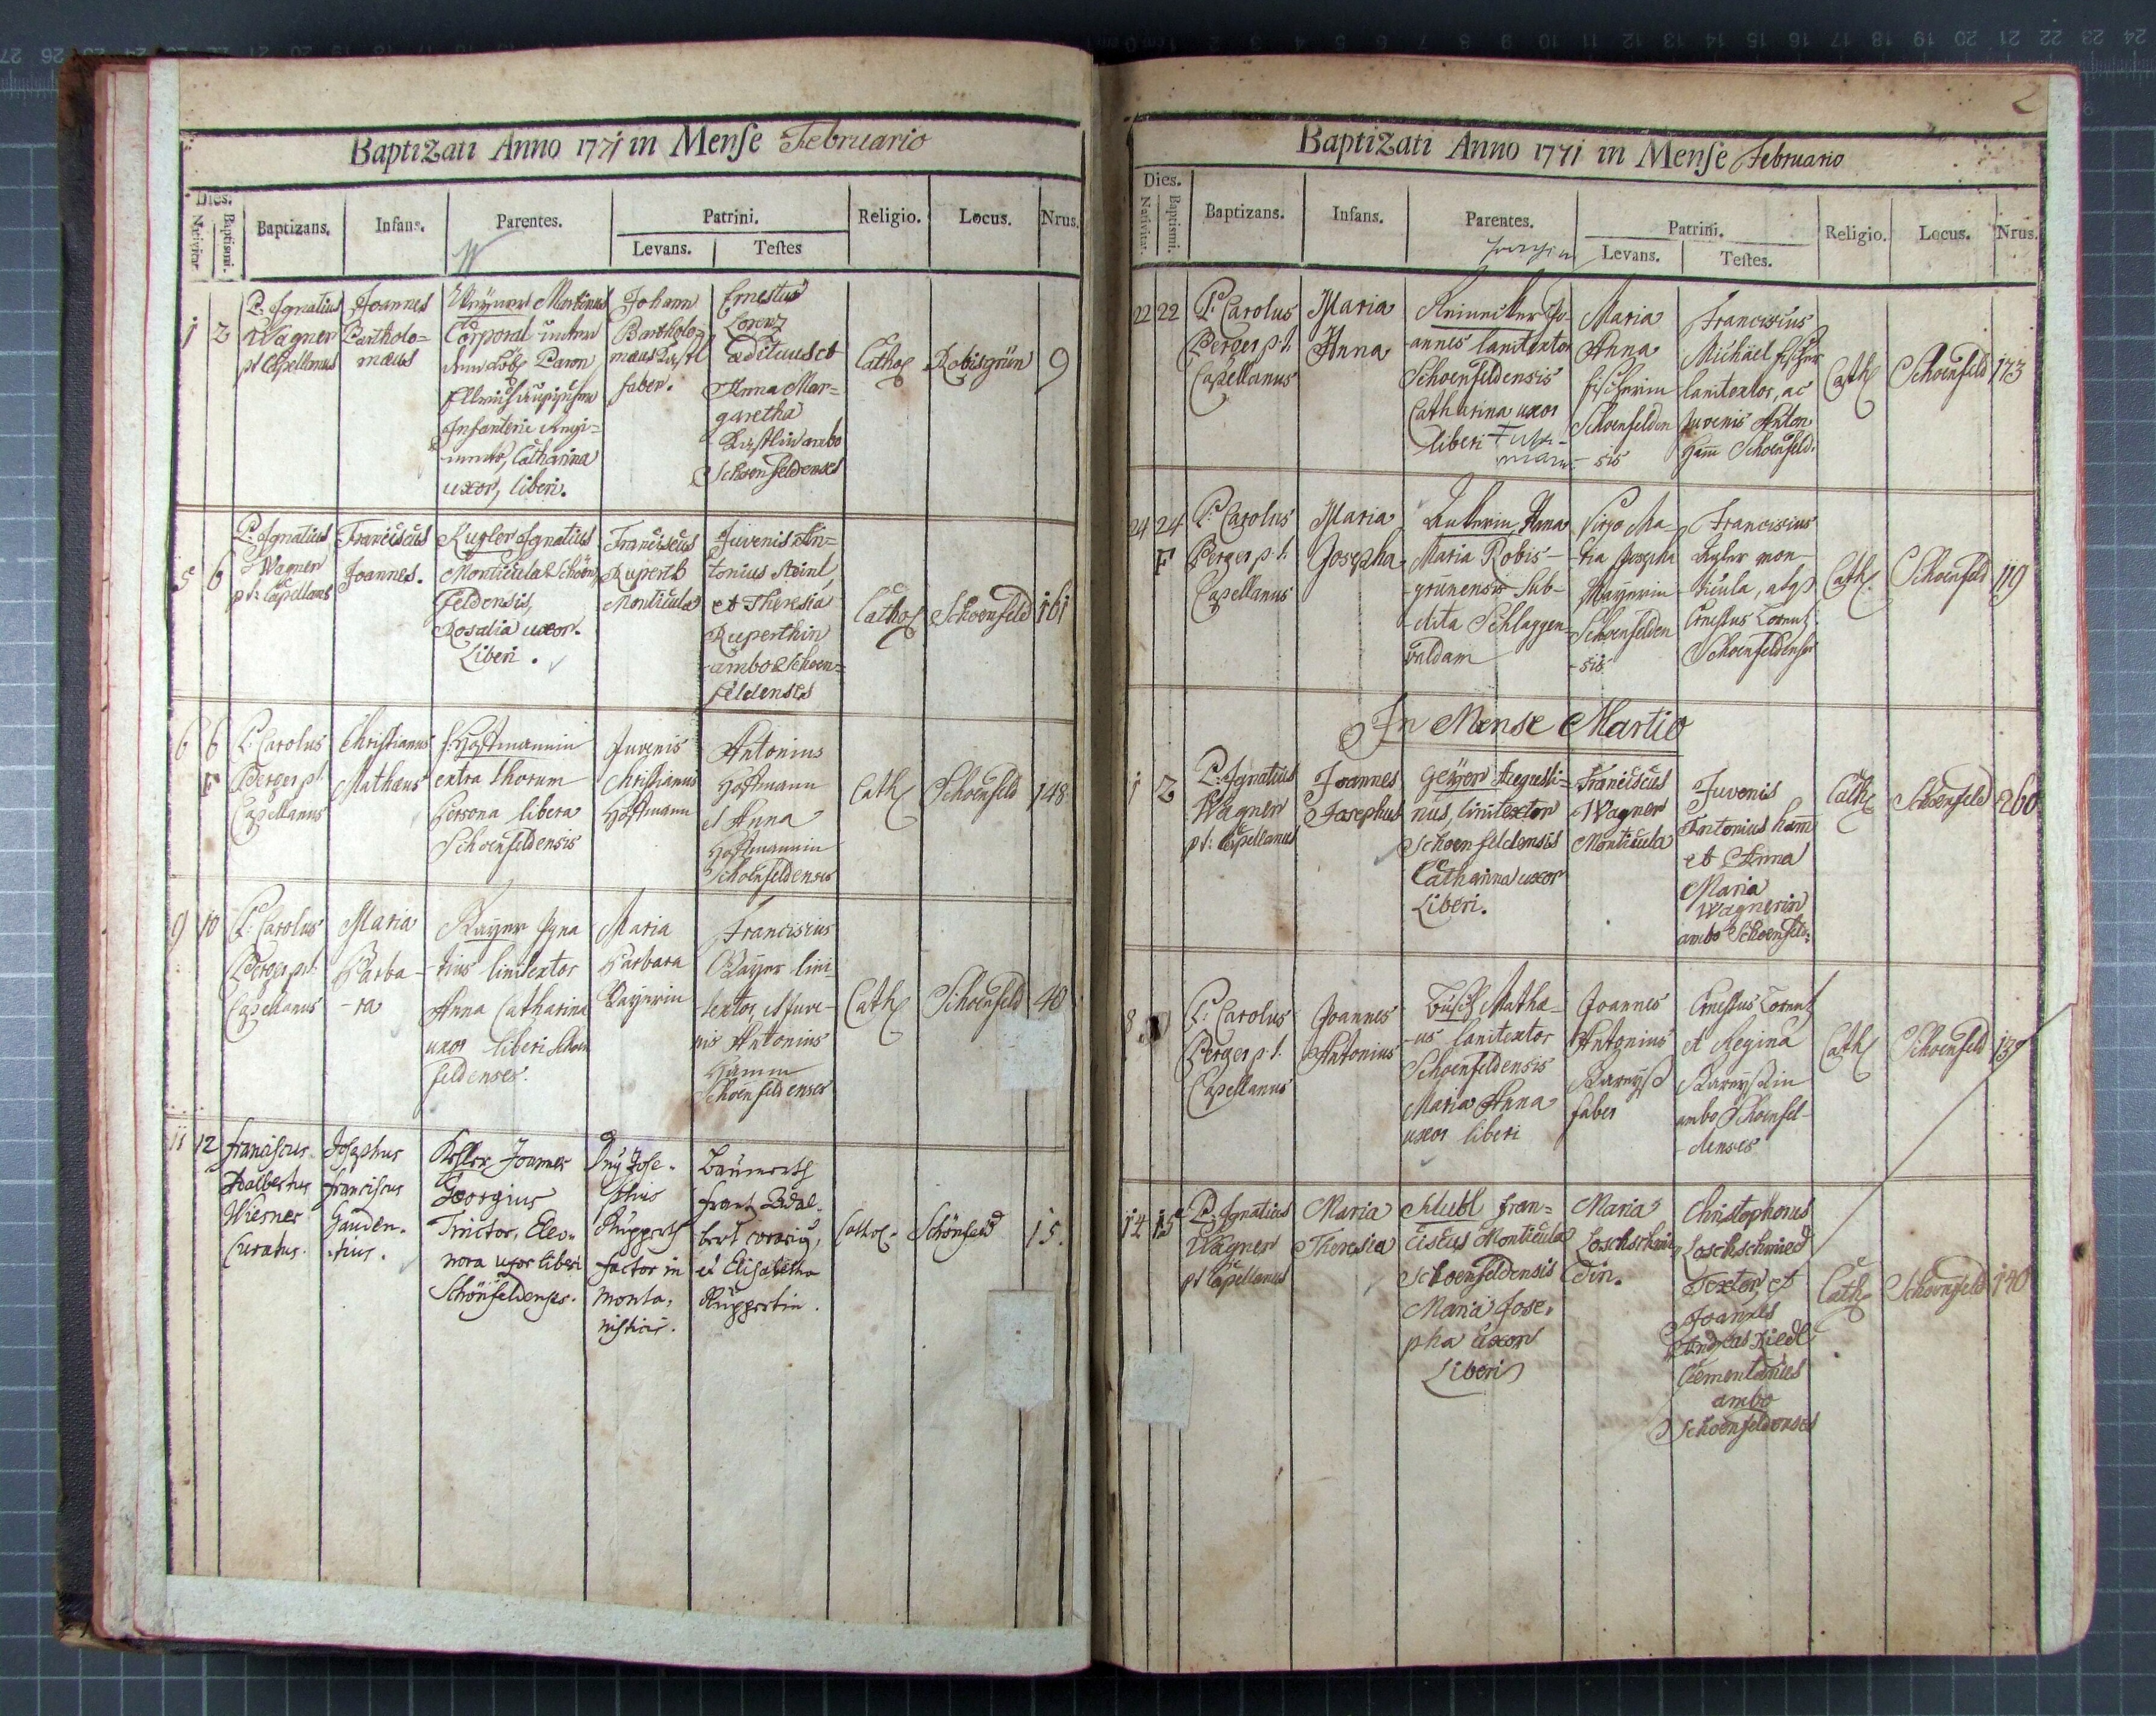 Baptizati Anno 1771 in Mense Februario
Dies.
Nativitat.
Baptismi.
Baptizans.
Infans.
Parentes.
Patrini.
Levans.
Testes
Religio.
Locus.
Nrus.
1
2
P. Ignatius
Wagner
pt Capellanus
Joannes
Bartholo=
mæus
Martinus
Corporal
Baron
Infanterie Regi=
Catharina
uxor, liberi.
Johann
Bartholo=
mæus
faber.
Ernestus
Lorenz
ædituus et
Anna Mar=
garetha
ambo
Schoenfeldenses
Cathol
Robisgrün
9
5
6
P. Ignatius
Wagner
pt: Capellans
Franciscus
Joannes.
Kugler Ignatius
Monticula Schoen
feldensis,
Rosalia uxor.
Liberi.
Franciscus
Rupert
Monticula
Juvenis An=
tonius Steinl
et Theresia
Ruperthin
ambo Schoen=
feldenses
Cathol
Schoenfeld
161
6
6
F
P. Carolus
Berger pt.
Capellanus
Christianus
Mathæus
Hoffmannin
extra thorum
Persona libera
Schoenfeldensis
Juvenis
Christianus
Hoffmann
Antonius
Hoffmann
et Anna
Hoffmannin
Schoenfeldenses
Cath
Schoenfeld
148
9
10
P. Carolus
Berger pt.
Capellanus
Maria
Barba-
-ra
Bayer Igna
tius linitextor
Anna Catharina
uxor liberi Schoen
feldenses.
Maria
Barbara
Bayerin
Franciscus
Bayer lini-
textor, et Juve-
nis Antonius
Hamm
Schoenfeldenses
Cath
Schoenfeld
40
11
12
Franciscus
Adalbertus
Wiesner
Curatus.
Josephus
Franciscus
Gauden-
tius.
Keßler Joannes
Georgius
Tinctor, Eleo=
nora uxor liberi
Schönfeldenses.
Dnus Jose=
phus
Ruppert
factor in
monta=
nisticis.
Franz Adal=
bert
et Elisabetha
Ruppertin.
Cathol.
Schönfeld
15.
2
Baptizati Anno 1771 in Mense Februario
Dies.
Nativitat.
Baptismi.
Baptizans.
Infans.
Parentes.
Patrini.
Levans.
Testes.
Religio.
Locus.
Nrus.
22
22
P. Carolus
Berger pt.
Capellanus
Maria
Anna
Jo-
annes lanitextor
Schoenfeldensis
Catharina uxor
liberi
Maria
Anna
Fischerin
Schoenfelden
-sis
Franciscus
Michael Fischer
lanitextor, ac
Juvenis Anton
Ham Schoenfeld.
Cath
Schoenfeld
173
24
24
F
P. Carolus
Berger pt.
Capellanus
Maria
Josepha
Anna
Maria Robis-
grünensis Sub-
dita Schlaggen-
valdam
Virgo Ma-
ria Josepha
Mayerin
Schoenfelden
-sis
Franciscus
mon-
ticula, atq
Ernestus Lorentz
Schoenfeldenses
Cath
Schoenfeld
119
In Mense Martio
1
2
P. Ignatius
Wagner
pt: Capellanus
Joannes
Josephus
Geyer Augusti=
nus, linitextor
Schoenfeldensis
Catharina uxor
Liberi.
Franciscus
Wagner
Monticula
Juvenis
Antonius Ham
et Anna
Maria
Wagnerin
ambo Schoenfeld:
Cath
Schoenfeld
260
8
P. Carolus
Berger pt.
Capellanus
Joannes
Antonius
Mathæ-
-us lanitextor
Schoenfeldensis
Maria Anna
uxor liberi
Joannes
Antonius
faber
Ernestus Lorentz
et Regina
ambo Schoenfel-
-denses
Cath
Schoenfeld
139
14
15
P. Ignatius
Wagner
pt Capellanus
Maria
Theresia
Fran=
ciscus Monticula
Schoenfeldensis
Maria Jose=
pha Uxor
Liberi
Maria
Loschschmie
din.
Christophorus
Loschschmied
Textor, et
Joannes
Andreas Riedl
Cementarius
ambo
Schoenfeldenses
Cath
Schoenfeld
140